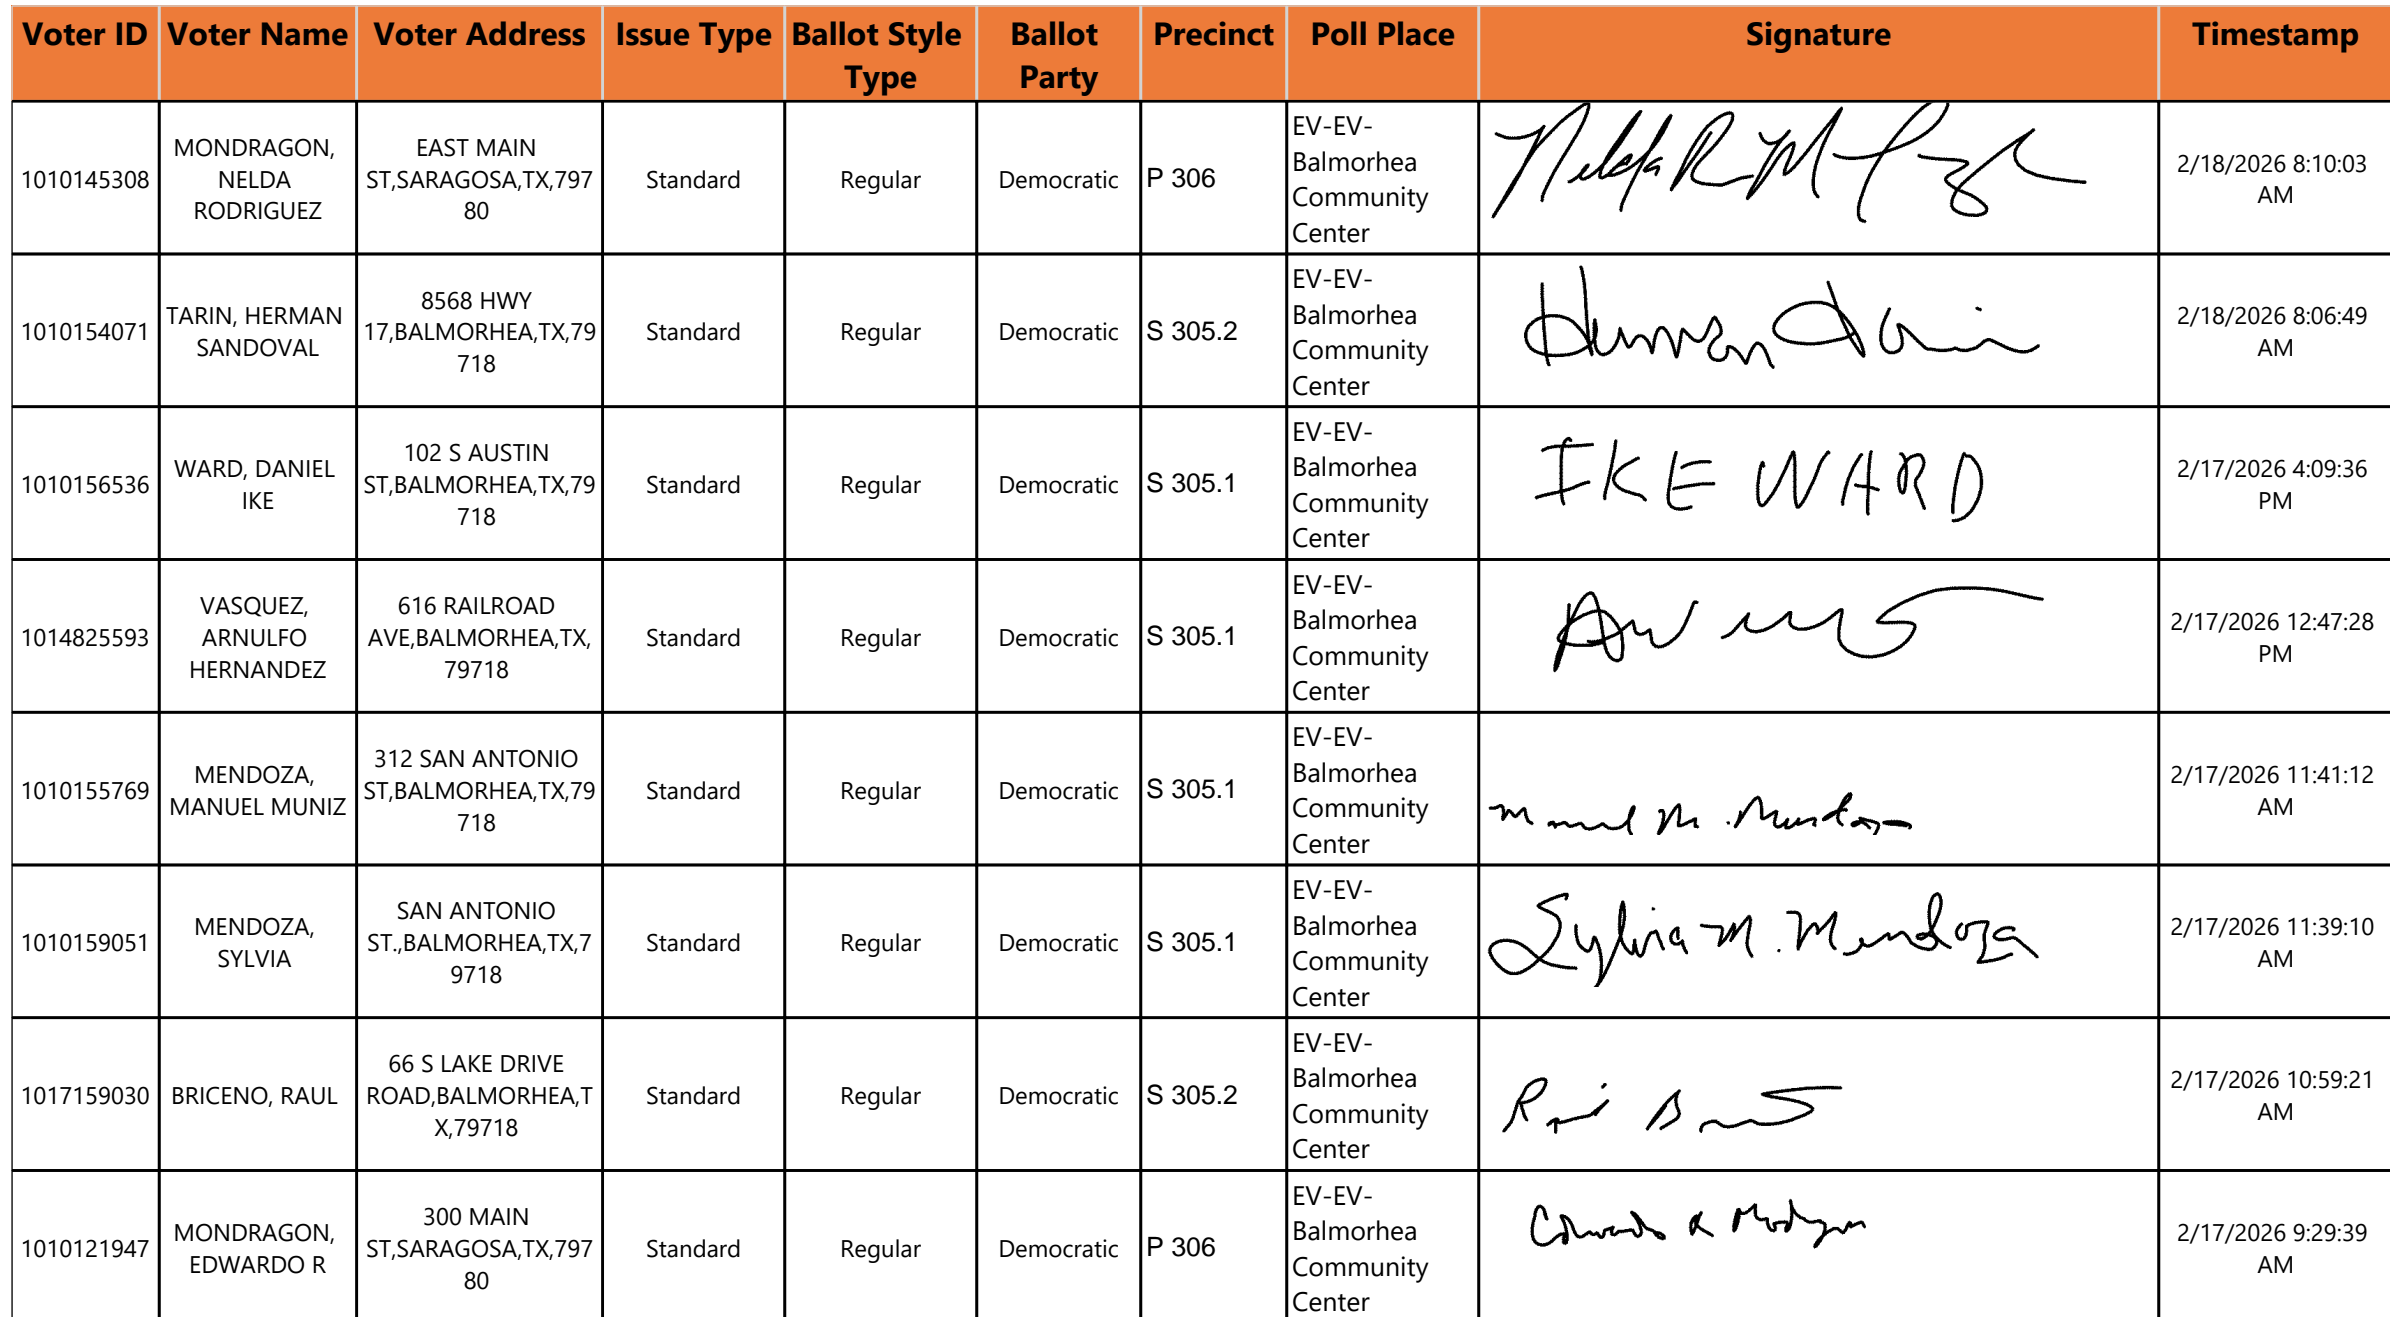 Voter ID Voter Name Voter Address Issue Type Ballot Style Type Ballot Party Precinct Poll Place Signature Timestamp
1010145308
MONDRAGON,
NELDA
RODRIGUEZ
EAST MAIN
ST,SARAGOSA,TX,797
80
Standard
Regular
Democratic
P 306
EV-EV-
Balmorhea
Community
Center
Nelda R M
2/18/2026 8:10:03
AM
1010154071
TARIN, HERMAN
SANDOVAL
8568 HWY
17,BALMORHEA,TX,79
718
Standard
Regular
Democratic
S 305.2
EV-EV-
Balmorhea
Community
Center
Herman Tarin
2/18/2026 8:06:49
AM
1010156536
WARD, DANIEL
IKE
102 S AUSTIN
ST,BALMORHEA,TX,79
718
Standard
Regular
Democratic
S 305.1
EV-EV-
Balmorhea
Community
Center
IKE WARD
2/17/2026 4:09:36
PM
1014825593
VASQUEZ,
ARNULFO
HERNANDEZ
616 RAILROAD
AVE,BALMORHEA,TX,
79718
Standard
Regular
Democratic
S 305.1
EV-EV-
Balmorhea
Community
Center
2/17/2026 12:47:28
PM
1010155769
MENDOZA,
MANUEL MUNIZ
312 SAN ANTONIO
ST,BALMORHEA,TX,79
718
Standard
Regular
Democratic
S 305.1
EV-EV-
Balmorhea
Community
Center
Manuel M. Mendoza
2/17/2026 11:41:12
AM
1010159051
MENDOZA,
SYLVIA
SAN ANTONIO
ST.,BALMORHEA,TX,7
9718
Standard
Regular
Democratic
S 305.1
EV-EV-
Balmorhea
Community
Center
Sylvia M. Mendoza
2/17/2026 11:39:10
AM
1017159030
BRICENO, RAUL
66 S LAKE DRIVE
ROAD,BALMORHEA,T
X,79718
Standard
Regular
Democratic
S 305.2
EV-EV-
Balmorhea
Community
Center
2/17/2026 10:59:21
AM
1010121947
MONDRAGON,
EDWARDO R
300 MAIN
ST,SARAGOSA,TX,797
80
Standard
Regular
Democratic
P 306
EV-EV-
Balmorhea
Community
Center
Edwardo R Mondragon
2/17/2026 9:29:39
AM